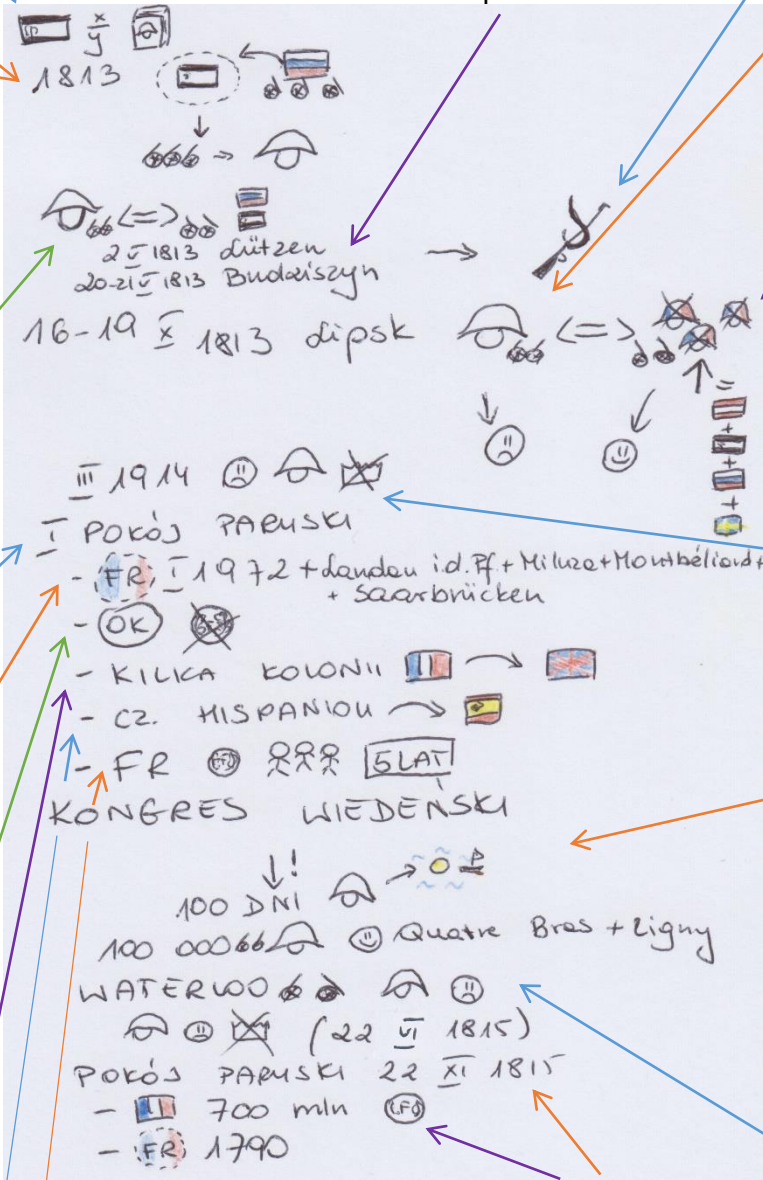 x/y
1813
2 V 1813 Lützen
20-21 V 1813 Budziszyn
16-19 X 1813 Lipsk
III 1914
I POKÓJ PARYSKI
- FR, I 1972 + Landau i.d.Pf + Miluza + Montbéliard +
+ Saarbrücken
- OK
- KILKA KOLONII
- CZ. HISPANIOLI
- FR 5 LAT
KONGRES WIEDEŃSKI
!
100 DNI
100 000 Quatre Bras + Ligny
WATERLOO
(22 VI 1815)
POKÓJ PARYSKI 22 XI 1815
- 700 mln
- FR 1790